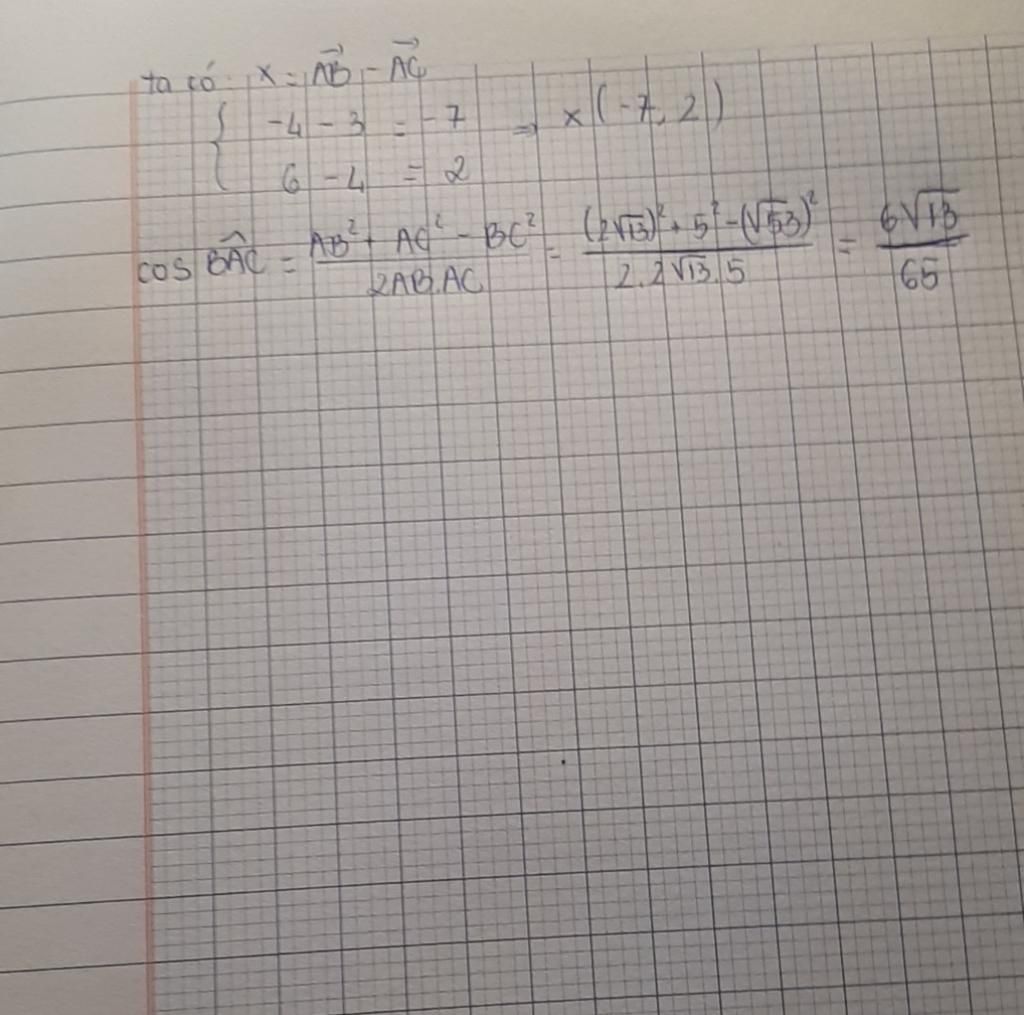 ta có: x = \overrightarrow{AB} - \overrightarrow{AC}
{ -4 - 3 = -7 ⇒ x(-7, 2)
{ 6 - 4 = 2
cos \widehat{BAC} = \frac{AB² + AC² - BC²}{2AB.AC} = \frac{(2√13)² + 5² - (√53)²}{2.2√13.5} = \frac{6√13}{65}